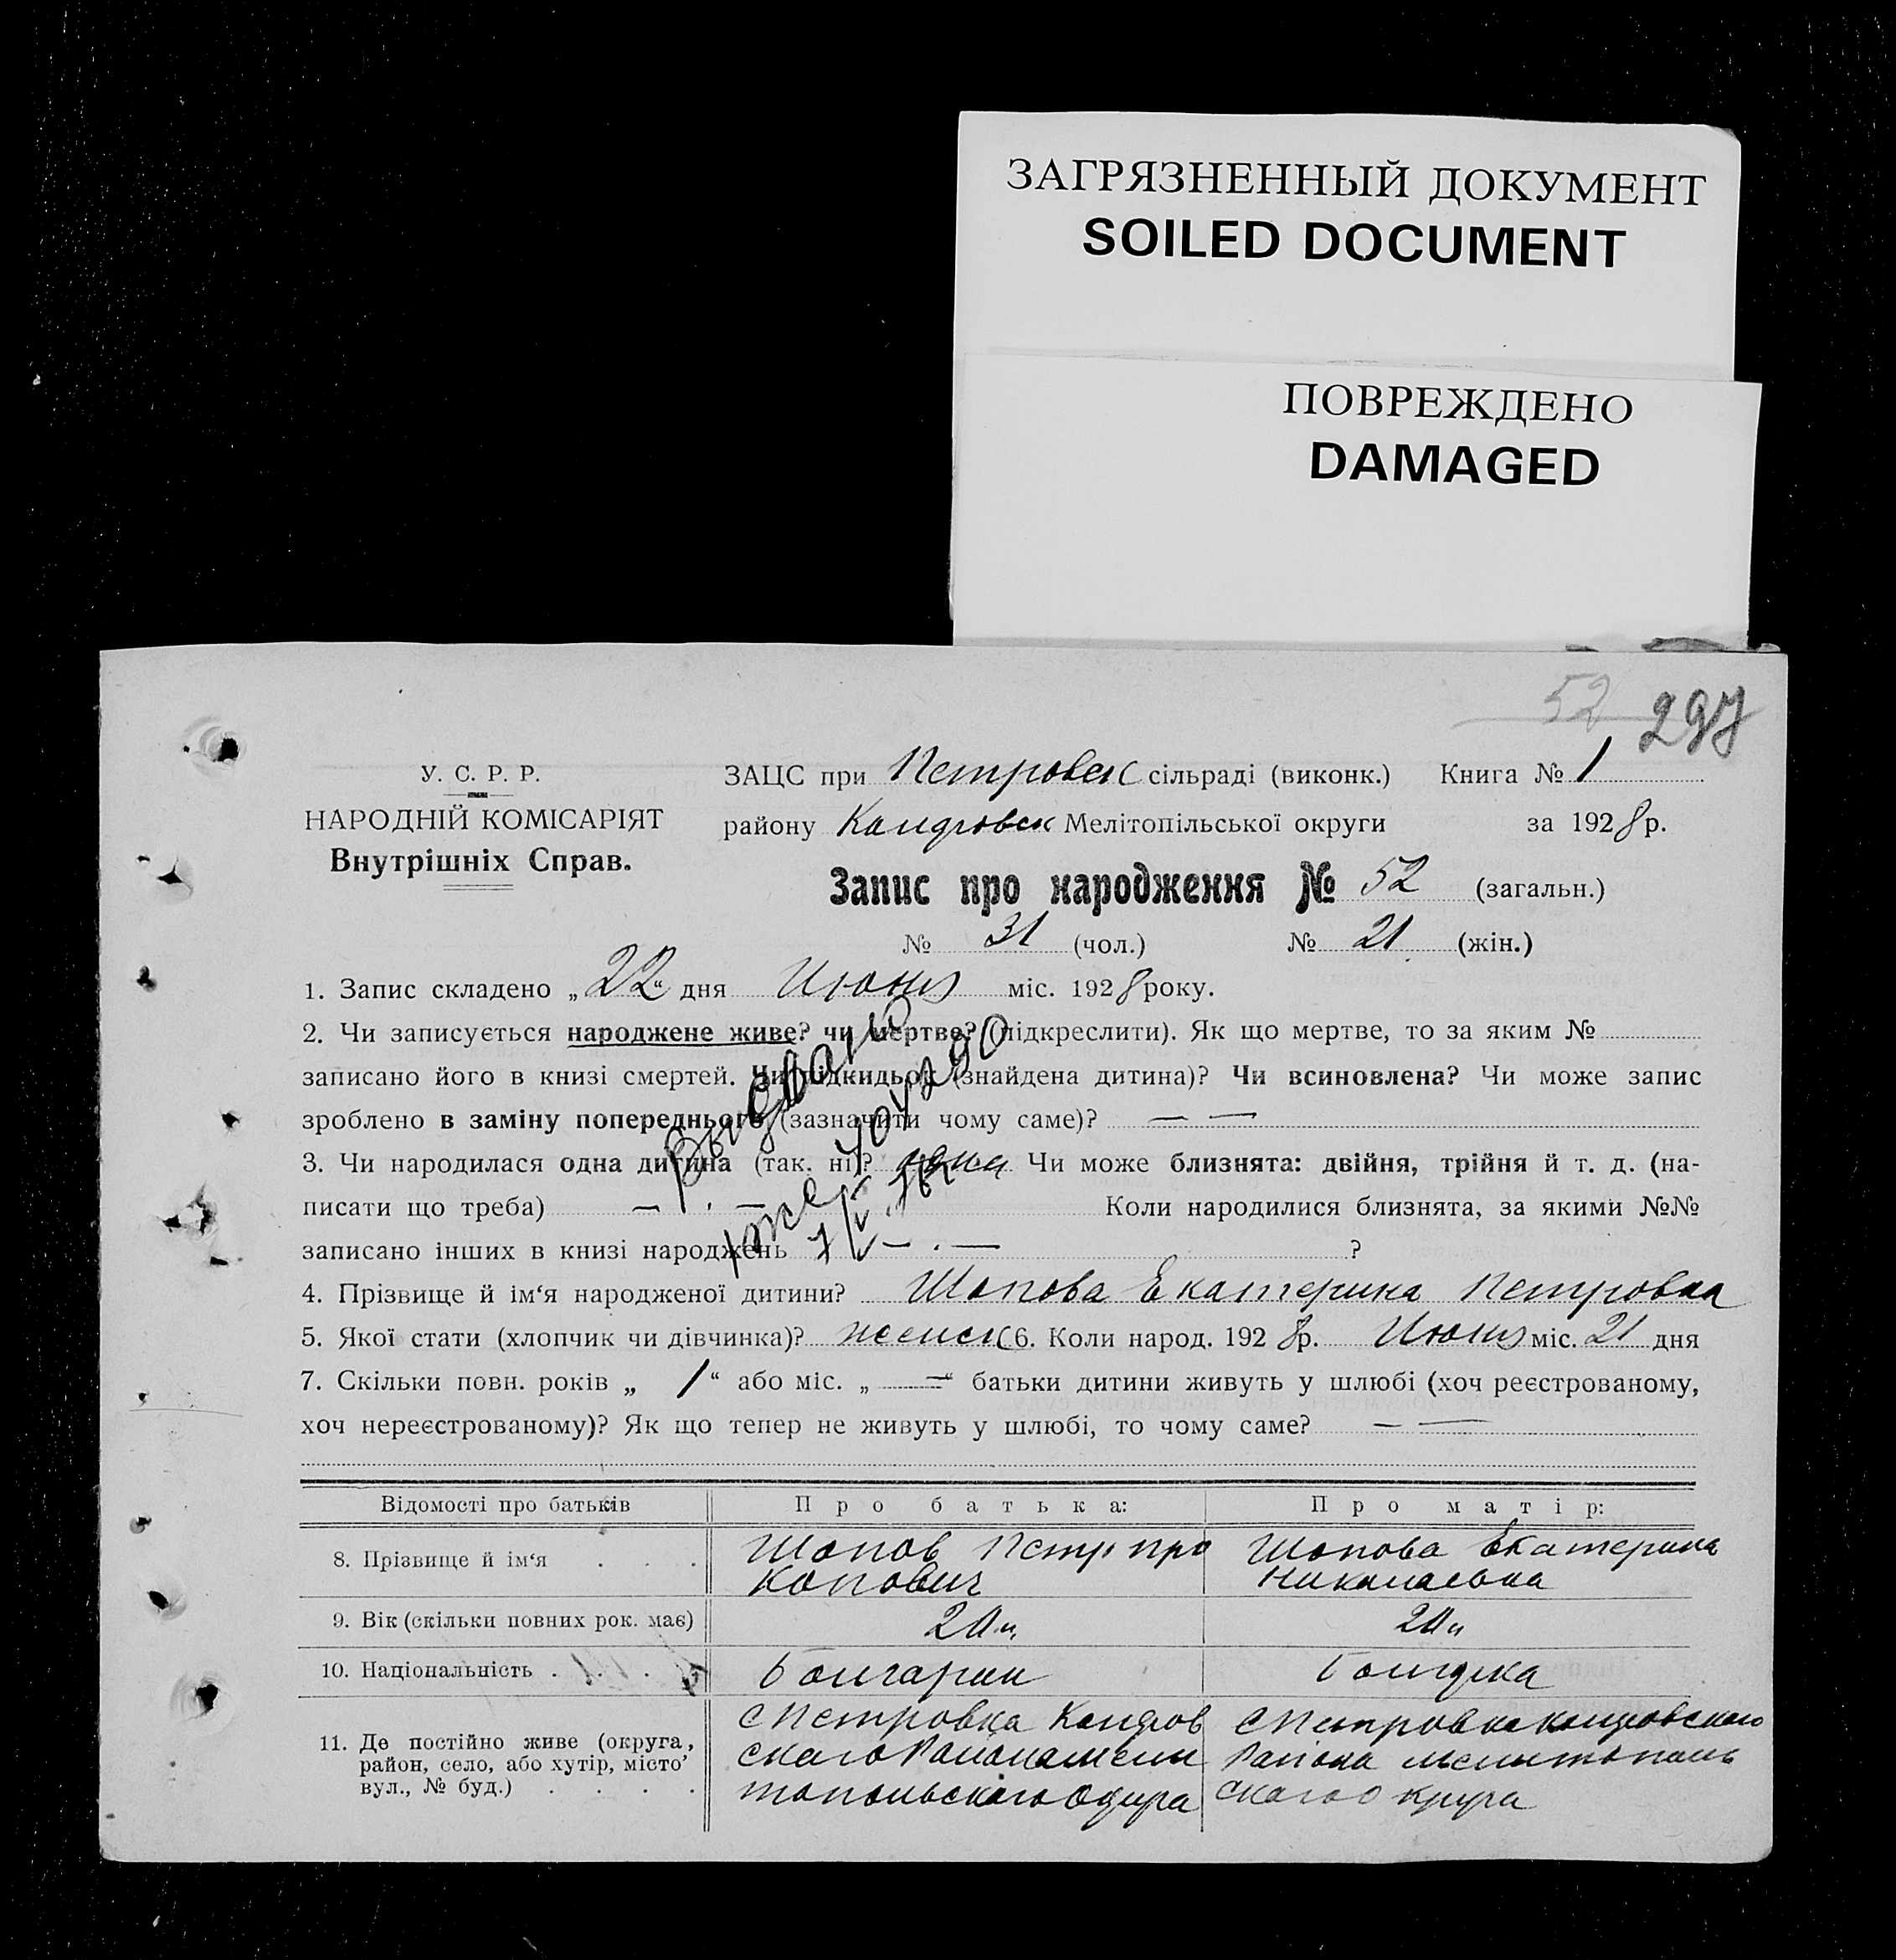 ЗАГРЯЗНЕННЫЙ ДОКУМЕНТ
SOILED DOCUMENT
ПОВРЕЖДЕНО
DAMAGED
52 297
У. С. Р. Р.
НАРОДНІЙ КОМІСАРІЯТ
Внутрішніх Справ.
ЗАЦС при Петровск сільраді (виконк.) Книга № 1
району Колдровск Мелітопільської округи за 1928 р.
Запис про народження № 52 (загальн.)
№ 31 (чол.) № 21 (жін.)
1. Запис складено „22“ дня Июня міс. 1928 року.
2. Чи записується народжене живе? чи мертве? (підкреслити). Як що мертве, то за яким №
записано його в книзі смертей. Чи підкидьок (знайдена дитина)? Чи всиновлена? Чи може запис
зроблено в заміну попереднього (зазначити чому саме)? — —
3. Чи народилася одна дитина (так, ні)? одна Чи може близнята: двійня, трійня й т. д. (на-
писати що треба) — . — Коли народилися близнята, за якими №№
записано інших в книзі народжень — . — ?
4. Прізвище й ім‘я народженої дитини? Шопова Екатерина Петровна
5. Якої стати (хлопчик чи дівчинка)? женск 6. Коли народ. 1928 р. Июня міс. 21 дня
7. Скільки повн. років „ 1 “ або міс. „ — “ батьки дитини живуть у шлюбі (хоч реєстрованому,
хоч нереєстрованому)? Як що тепер не живуть у шлюбі, то чому саме? — —
Відомості про батьків Про батька: Про матір:
8. Прізвище й ім‘я . . . Шопов Петр Про Шопова Екатерина
копович Николаевна
9. Вік (скільки повних рок. має) 20 л. 20 л.
10. Національність . . . . Болгарин Болгарка
11. Де постійно живе (округа,
район, село, або хутір, місто
вул., № буд.) . . . .
с Петровка Колдров
скаго Района Мели
топольского Округа
с Петровка Колдровского
Района Мелитополь
скаго Округа